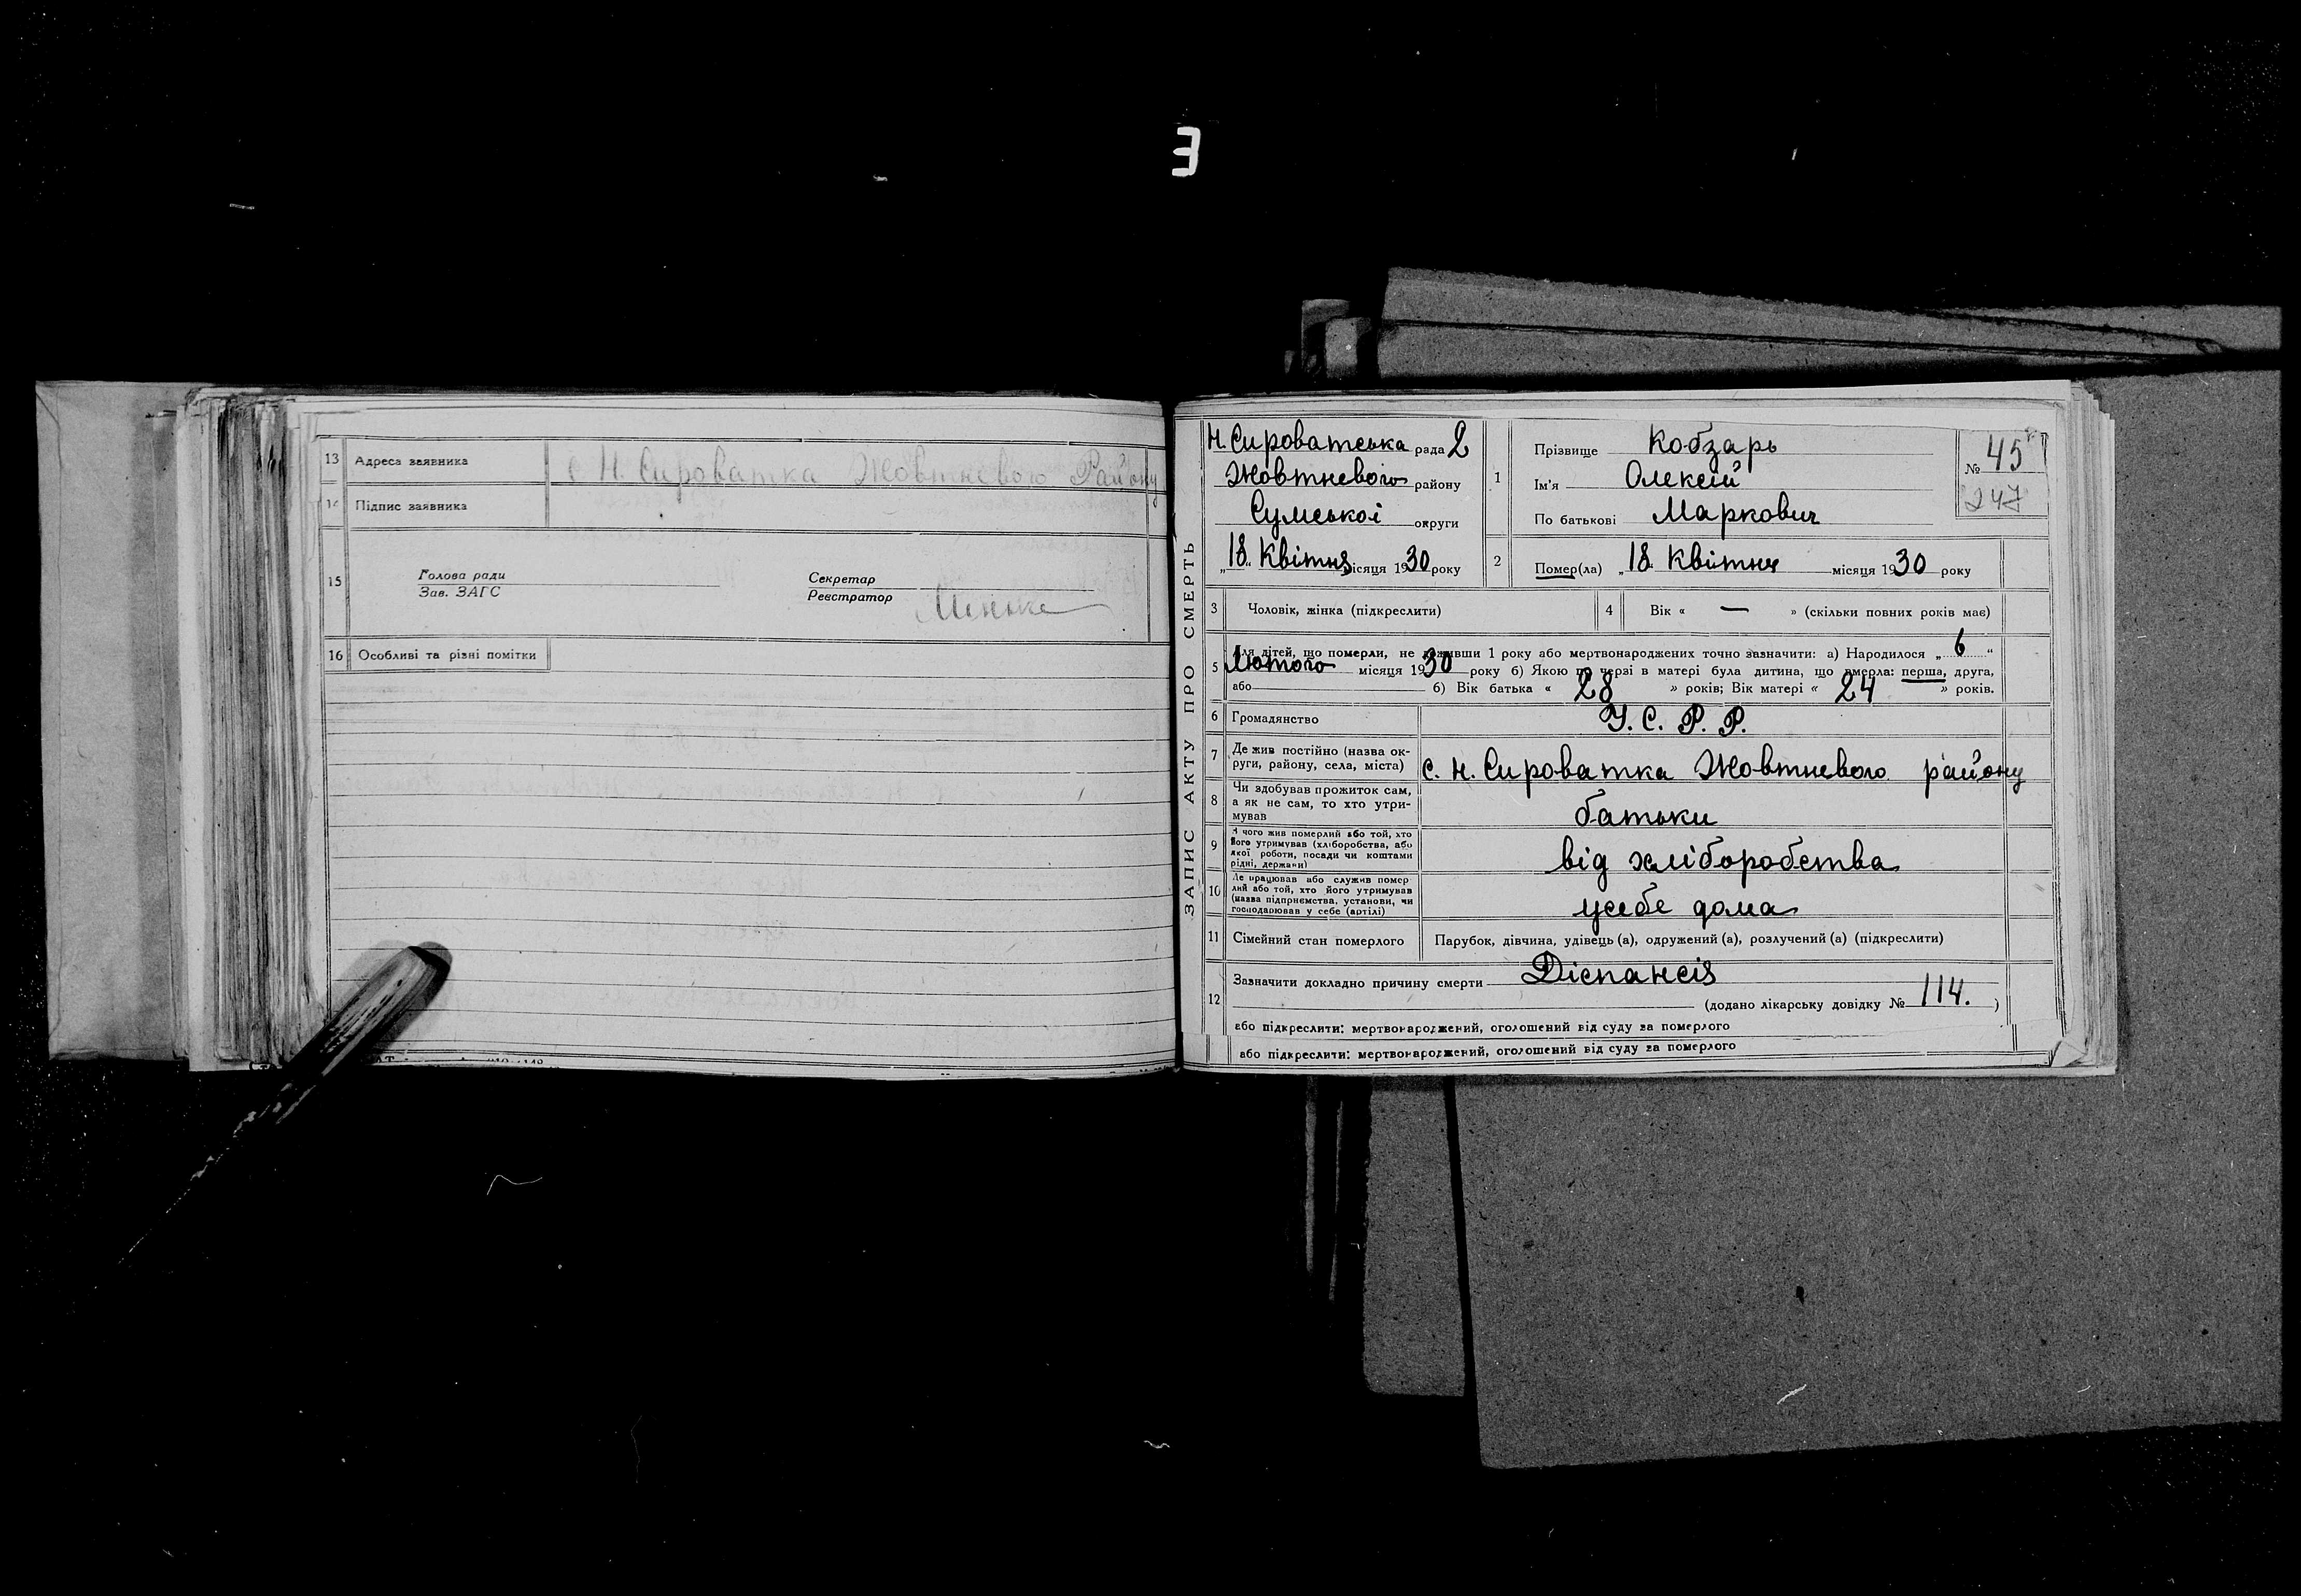 З
13 Адреса заявника с Н. Сироватка Жовтневого Району
14 Підпис заявника
15 Голова ради
Зав. ЗАГС
Секретар
Реєстратор
16 Особливі та різні помітки
ЗАПИС АКТУ ПРО СМЕРТЬ
Н. Сироватська рада 2
Жовтневого району
Сумської округи
„18“ Квітня місяця 1930 року
1 Прізвище Кобзарь
Ім'я Олексій
По батькові Маркович
№ 45
247
2 Помер(ла) „18“ Квітня місяця 1930 року
3 Чоловік, жінка (підкреслити)
4 Вік « — » (скільки повних років має)
5 Для дітей, що померли, не доживши 1 року або мертвонароджених точно зазначити: а) Народилося „ 6 “
Лютого місяця 1930 року б) Якою по черзі в матері була дитина, що вмерла: перша, друга,
або б) Вік батька « 28 » років; Вік матері « 24 » років.
6 Громадянство У. С. Р. Р.
7 Де жив постійно (назва ок-
руги, району, села, міста) с. Н. Сироватка Жовтневого району
8 Чи здобував прожиток сам,
а як не сам, то хто утри-
мував батьки
9 З чого жив померлий або той, хто
його утримував (хліборобства, або
якої роботи, посади чи коштами
рідні, держави) від хліборобства
10 Де працював або служив помер
лий або той, хто його утримував
(назва підприємства, установи, чи
господарював у себе (артілі) усебе дома
11 Сімейний стан померлого Парубок, дівчина, удівець (а), одружений (а), розлучений (а) (підкреслити)
12 Зазначити докладно причину смерти Діспансія
(додано лікарську довідку № 114. )
або підкреслити: мертвонароджений, оголошений від суду за померлого
або підкреслити: мертвонароджений, оголошений від суду за померлого